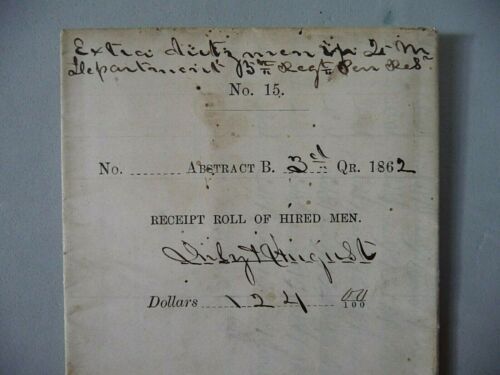 Extra duty men in Q. M
Department 13th Regt Pen Resr
No. 15.
No. ....... Abstract B. 3rd Qr. 1862
RECEIPT ROLL OF HIRED MEN.
July & August
Dollars 124 00/100